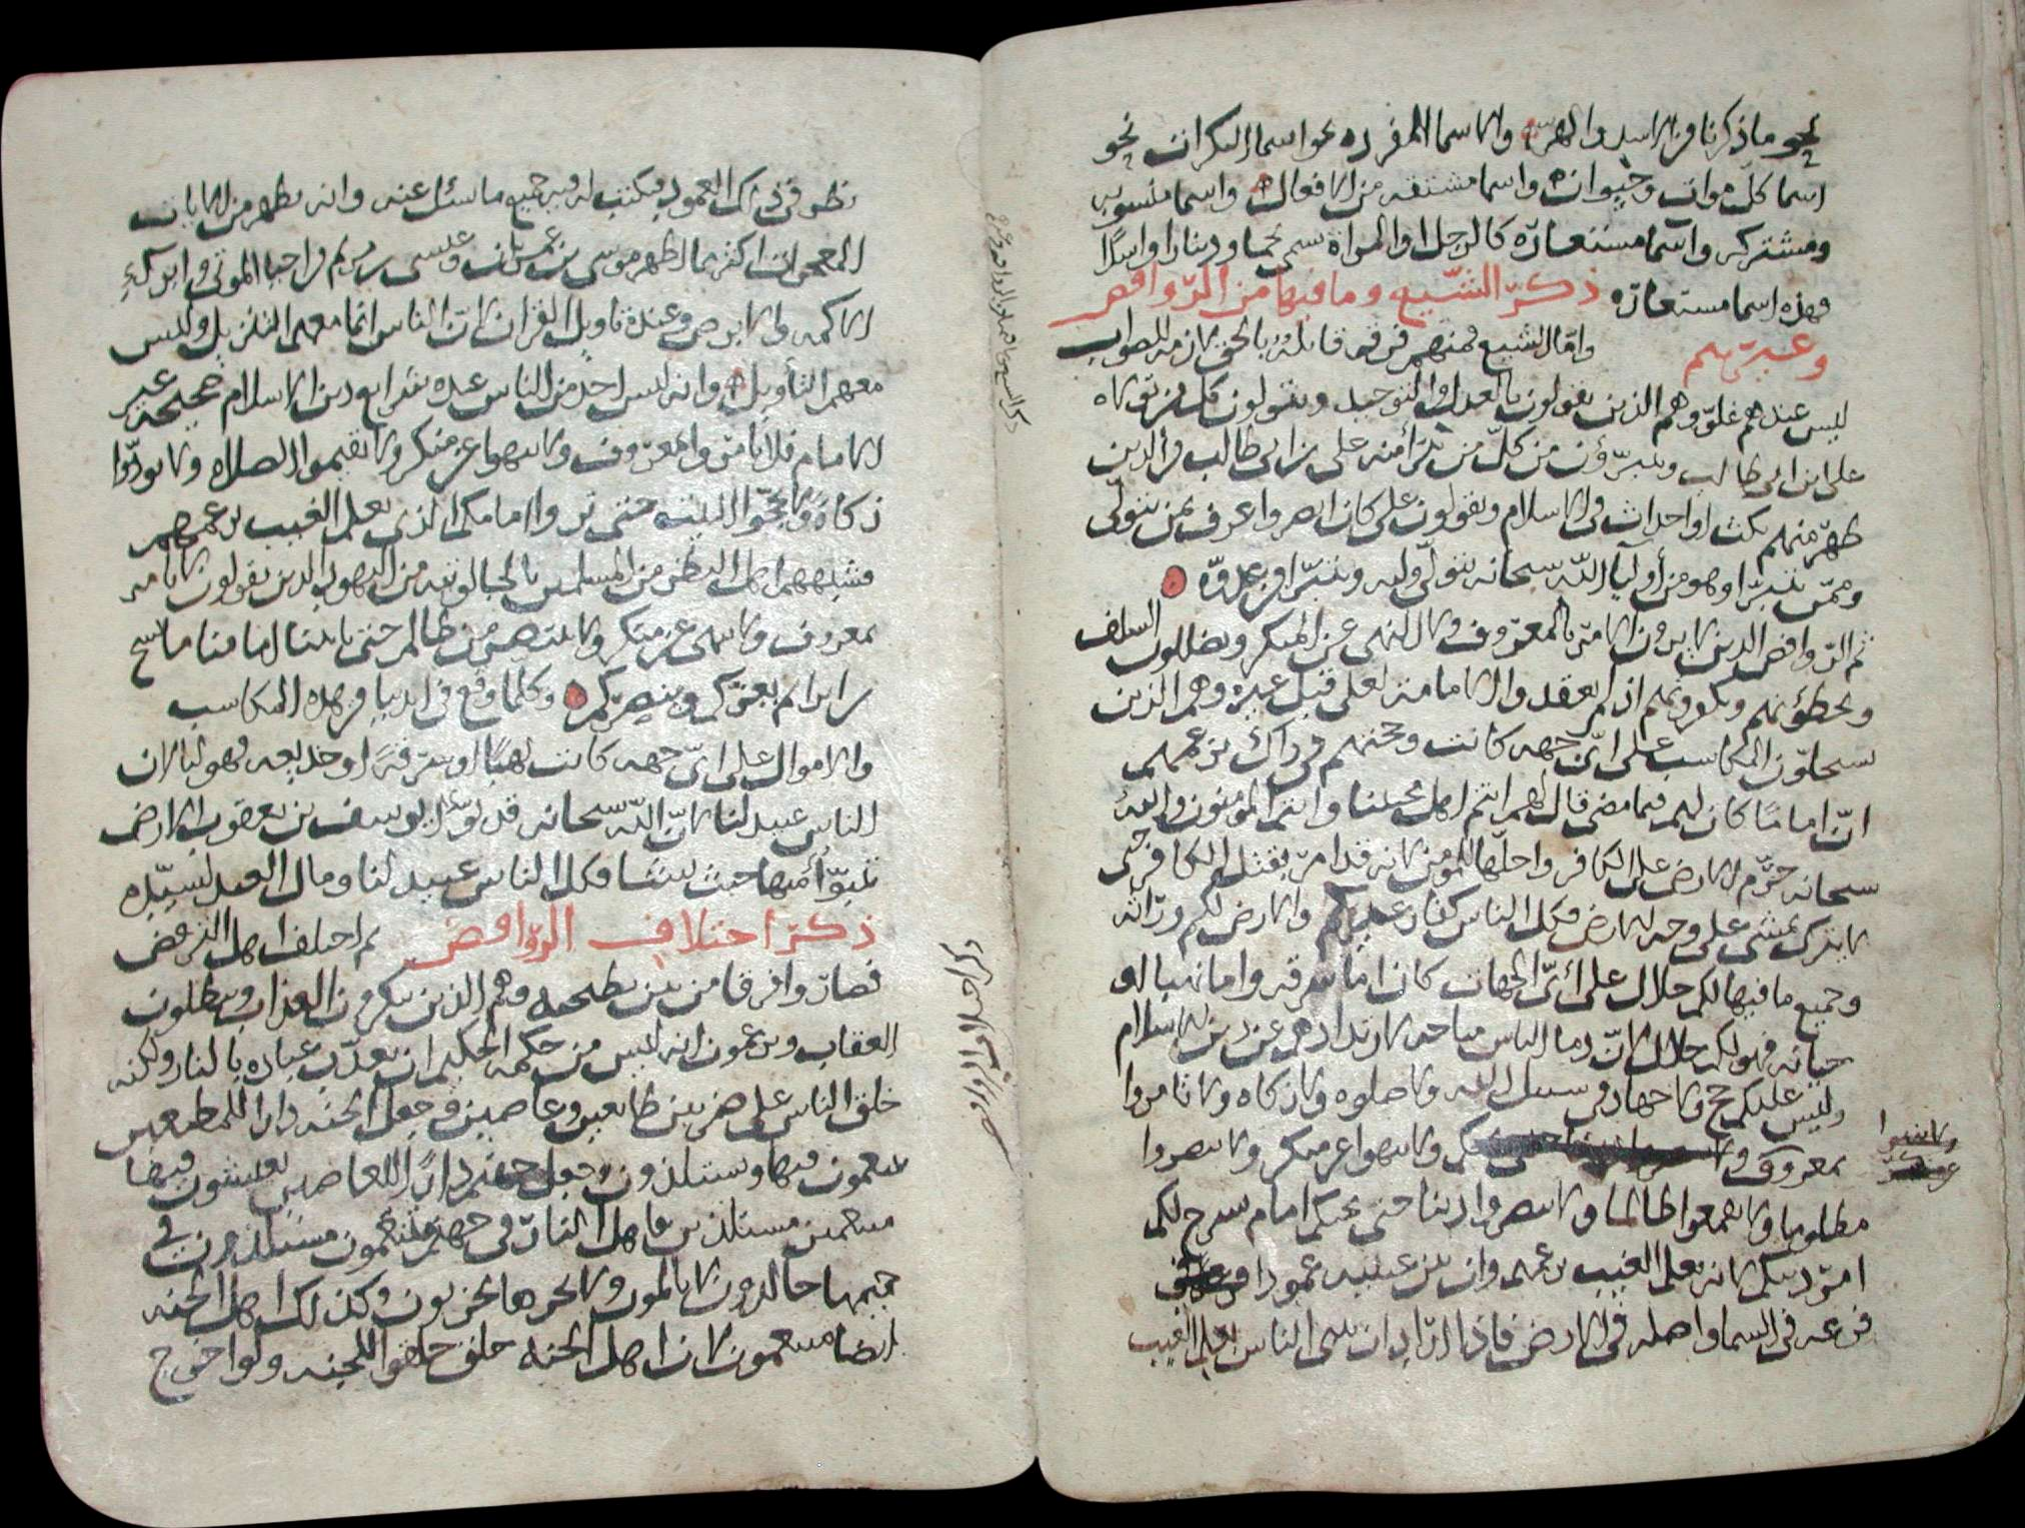 نحو ما ذكرنا من الاسد والهر والاسما المفرده نحو اسما النكرات نحو
اسما كل موات وحيوانه واسما مشتقه من الافعال واسما منسوبه
ومشتركه واسما مستعاره كالرجل او المراة سمى نجما ودينارا واسدا
فهذه اسما مستعاره ذكر الشيع وما فيها من الروافض
وغيرهم واما الشيع فمنهم فرقه قايله بالحق لازمه للصواب
ليس عندهم غلو وهم الذين يقولون بالعدل والتوحيد ويتولون كل من تولاه
على ابن ابى طالب ويتبرؤن من كل من تبرا منه على بن ابى طالب من الذين
ظهر منهم نكث او احداث في الاسلام ويقولون على كان ابصر واعرف بمن يتولى
وممن يتبرا وهو من أوليا الله سبحانه نتولى وليه ونتبرا من عدوه
ثم الروافض الذين لا يرون الامر بالمعروف ولا النهي عن المنكر ويضللون السلف
ويخطؤنهم ويكفرونهم اذ لم العقدوا الامامة لعلى قبل غيره وهم الذين
يستحلون المكاسب على اى جهه كانت وحجتهم فى ذاك بزعمهم
ان اماما كان لهم فيما مضى قال لهم انتم اهل محبتنا وانتم المؤمنون والله
سبحانه حرم الارض على الكافر واحلها للمؤمن لانه قد امر بقتل الكافر حتى
لا يترك يمشى على وجه الارض فكل الناس كفار غيركم والارض لكم وراثه
وجميع ما فيها لكم حلال على أى الجهات كان اما سرقه واما نهبا او
خيانه فهو لكم حلال لان دما الناس مباحه لارتدادهم عن دين الاسلام
وليس عليكم حج ولا جهاد في سبيل الله ولا صلوه ولا زكاه ولا تامروا
بمعروف ولا تنهوا عن منكر ولا تنصروا
ولا تنهوا
عن منكر
مظلوما ولا تقمعوا ظالما ولا تنصروا دينا حتى يجيكم امام يشرح لكم
امر دينكم لانه يعلم الغيب بزعمهم وان بين عينيه عمودا
فرعه فى السما واصله في الارض فاذا اراد ان يفتى الناس بعلم الغيب
ذكر اختلاف الروافض
نظر في ذاك العمود فيكتب له فيه جميع ما سئل عنه وانه يظهر من الايات
المعجزات اكثر مما اظهر موسى بن عمران وعيسى بن مريم من احيا الموتى وابراء
الاكمه والابرص وعنده تاويل القران لان الناس انما معهم التنزيل وليس
معهم التأويل وانه ليس احد من الناس عنده شرايع دين الاسلام صحيحة غير
الامام فلا تامروا بمعروف ولا تنهوا عن منكر ولا تقيموا الصلاه ولا تودوا
زكاة ولا تحجوا البيت حتى تروا امامكم الذي يعلم الغيب بزعمهم
فشبههم اهل النظر من المسلمين بالجالوتيه من اليهود الذين يقولون لا نامر
بمعروف ولا ننهى عن منكر ولا ننتصر من ظالم حتى ياتينا امامنا ماسح
بن ابراهم يعزكم وينصركم وكلما وقع في ايدينا من هذه المكاسب
والاموال على اى جهه كانت نهبا او سرقة او خديعه فهو لنا لان
الناس عبيد لنا لان الله سبحانه قد بوأ ليوسف بن يعقوب الارض
يتبوأ منها حيث يشا فكل الناس عبيد لنا ومال العبد لسيده
ذكر اختلاف الروافض ثم اختلف اهل الترفض
فصاروا فرقا من بين بطيحيه وهم الذين ينكرون العذاب ويبطلون
العقاب ويزعمون انه ليس من حكمه الحكيم ان يعذب عباده بالنار ولكنه
خلق الناس على ضربين طايعين وعاصين وجعل الجنه دارا للمطيعين
يتنعمون فيها ويستلذون وجعل جهنم دارا للعاصين يعيشون فيها
متنعمين مستلذين فاهل النار فى جهنم متنعمون مستلذون في
جحيمها خالدون لا يالمون ولا لحرها يحزنون وكذلك اهل الجنه
ايضا متنعمون لان اهل الجنه خلق خلقوا للجنه ولو اخرج